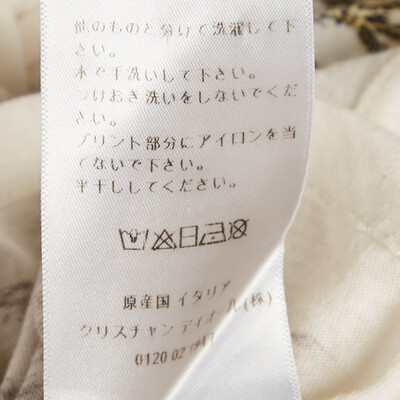 他のものと分けて洗濯して下
さい。
水で手洗いして下さい。
つけおき洗いをしないでくだ
さい。
プリント部分にアイロンを当
てないで下さい。
半干ししてください。
原産国 イタリア
クリスチャン ディオール(株)
0120 02